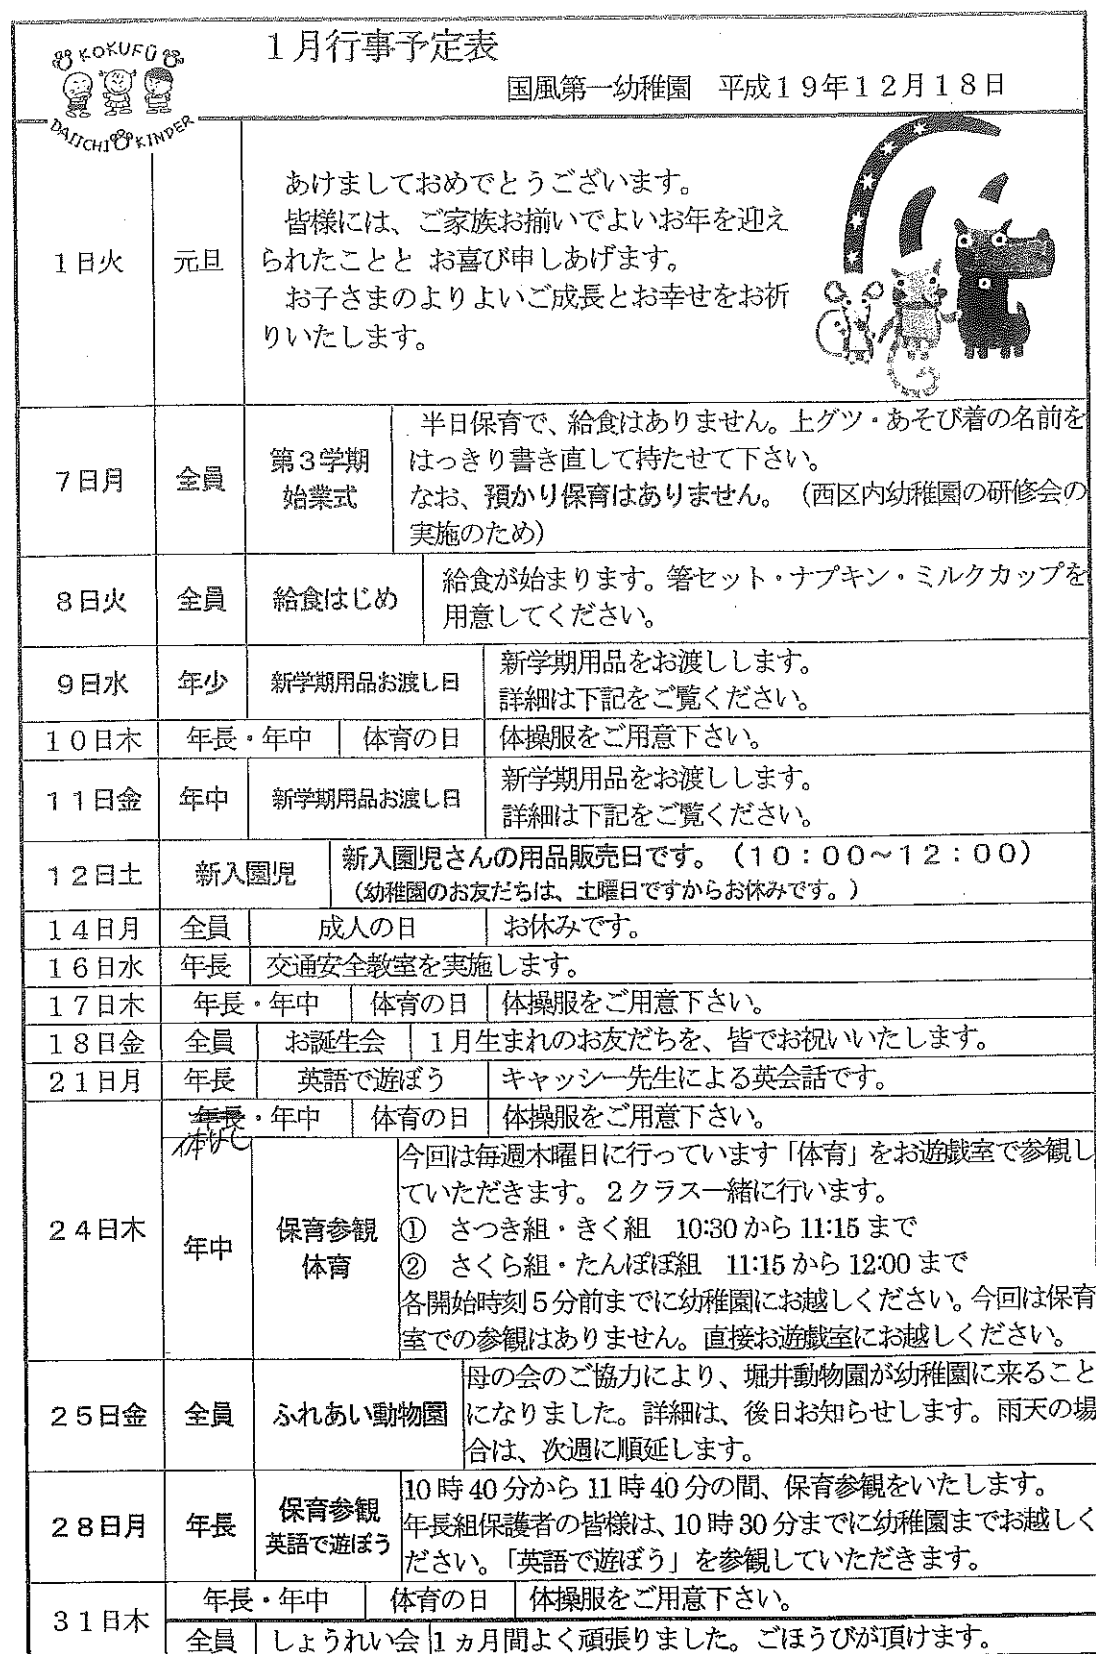 KOKUFŪ
DAIICHI KINDER
1月行事予定表
国風第一幼稚園 平成19年12月18日
1日火
元旦
あけましておめでとうございます。
皆様には、ご家族お揃いでよいお年を迎え
られたことと お喜び申しあげます。
お子さまのよりよいご成長とお幸せをお祈
りいたします。
7日月
全員
第3学期
始業式
半日保育で、給食はありません。上グツ・あそび着の名前を
はっきり書き直して持たせて下さい。
なお、預かり保育はありません。（西区内幼稚園の研修会の
実施のため）
8日火
全員
給食はじめ
給食が始まります。箸セット・ナプキン・ミルクカップを
用意してください。
9日水
年少
新学期用品お渡し日
新学期用品をお渡しします。
詳細は下記をご覧ください。
10日木 年長・年中 体育の日 体操服をご用意下さい。
11日金
年中
新学期用品お渡し日
新学期用品をお渡しします。
詳細は下記をご覧ください。
12日土
新入園児
新入園児さんの用品販売日です。（10：00～12：00）
（幼稚園のお友だちは、土曜日ですからお休みです。）
14日月 全員 成人の日 お休みです。
16日水 年長 交通安全教室を実施します。
17日木 年長・年中 体育の日 体操服をご用意下さい。
18日金 全員 お誕生会 1月生まれのお友だちを、皆でお祝いいたします。
21日月 年長 英語で遊ぼう キャッシー先生による英会話です。
24日木
年長・年中 体育の日 体操服をご用意下さい。
体なし
年中
保育参観
体育
今回は毎週木曜日に行っています「体育」をお遊戯室で参観し
ていただきます。2クラス一緒に行います。
① さつき組・きく組 10:30から11:15まで
② さくら組・たんぽぽ組 11:15から12:00まで
各開始時刻5分前までに幼稚園にお越しください。今回は保育
室での参観はありません。直接お遊戯室にお越しください。
25日金
全員
ふれあい動物園
母の会のご協力により、堀井動物園が幼稚園に来ること
になりました。詳細は、後日お知らせします。雨天の場
合は、次週に順延します。
28日月
年長
保育参観
英語で遊ぼう
10時40分から11時40分の間、保育参観をいたします。
年長組保護者の皆様は、10時30分までに幼稚園までお越しく
ださい。「英語で遊ぼう」を参観していただきます。
31日木
年長・年中 体育の日 体操服をご用意下さい。
全員 しょうれい会 1ヵ月間よく頑張りました。ごほうびが頂けます。